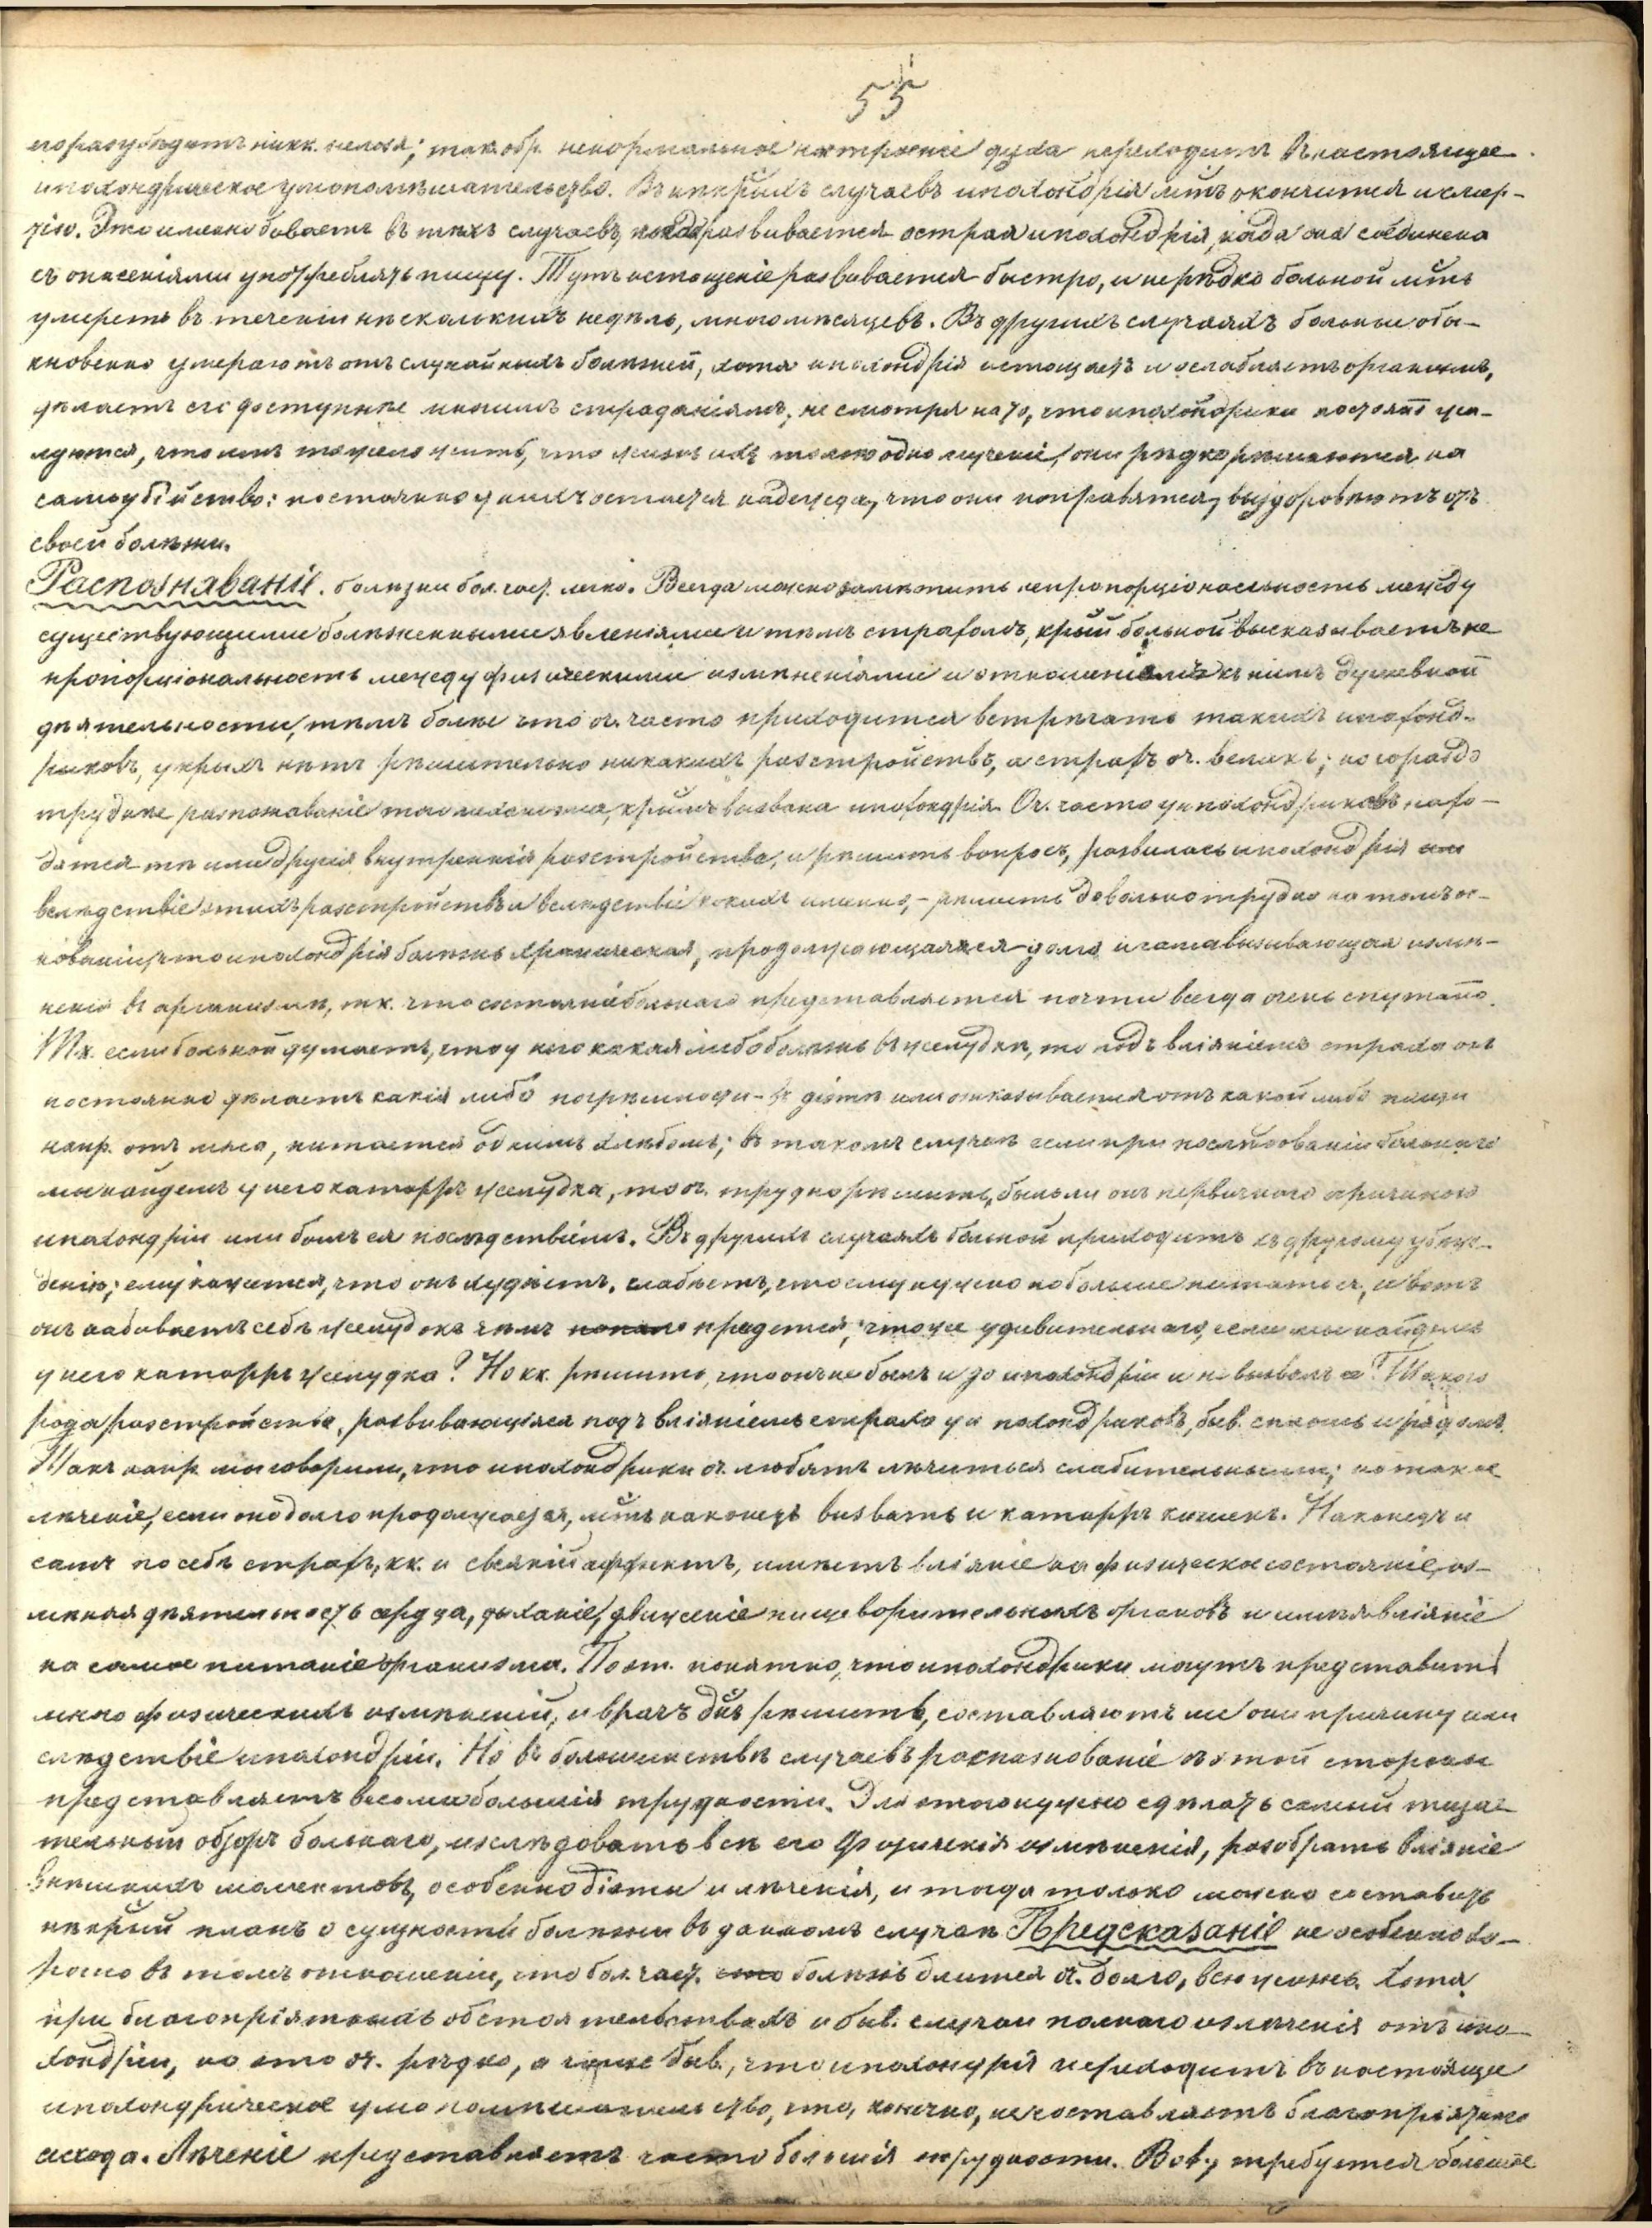 55
его разубѣдить никк. нельзя; так. обр. ненормальное настроеніе духа переходитъ въ настоящее
ипохондрическое умопомѣшательство. Въ нѣкрыхъ случаевъ ипохондрія мтъ окончится и смер-
тію. Это именно бываетъ въ тѣхъ случаевъ, когда развивается острая ипохондрія, когда она соединена
съ опасеніями употреблять пищу. Тутъ истощеніе развивается быстро, и нерѣдко больной мтъ
умереть въ теченіи нѣсколькихъ недѣль, много мѣсяцевъ. Въ другихъ случаяхъ больные обы-
кновенно умираютъ отъ случайныхъ болѣзней, хотя ипохондрія истощаетъ и ослабляетъ организмъ,
дѣлаетъ его доступнѣе инымъ страданіямъ; не смотря на то, что ипохондрики постоянно жа-
луются, что имъ тяжело жить, что жизнь ихъ только одно мученіе, они рѣдко рѣшаются на
самоубійство: постоянно у нихъ остается надежда, что они поправятся, выздоровѣютъ отъ
своей болѣзни.
Распознаваніе. болѣзни бол. част. легко. Всегда можно замѣтить непропорціональность между
существующими болѣзненными явленіями и тѣмъ страхомъ, крый больной высказываетъ не
пропорціональность между физическими измѣненіями и отношеніемъ къ нимъ душевной
дѣятельности, тѣмъ болѣе что оч. часто приходится встрѣчать такихъ ипохонд-
риковъ, у крыхъ нѣтъ рѣшительно никакихъ разстройствъ, а страхъ оч. великъ; но гораздо
труднѣе распознаваніе того, крымъ вызвана ипохондрія. Оч. часто у ипохондриковъ нахо-
дятся тѣ или другія внутреннія разстройства, и рѣшить вопросъ, развилась ипохондрія
вслѣдствіе этихъ разстройствъ и вслѣдствіе какихъ именно, - рѣшить довольно трудно на томъ ос-
нованіи, что ипохондрія болѣзнь хроническая, продолжающаяся долго и сама вызывающая измѣ-
ненія въ организмѣ, тк. что состояніе больнаго представляется почти всегда очень спутано.
Тк. если больной думаетъ, что у него какая либо болѣзнь въ желудкѣ, то подъ вліяніемъ страха онъ
постоянно дѣлаетъ какія либо погрѣшности въ діэтѣ или отказывается отъ какой либо пищи
напр. отъ мяса, питается однимъ хлѣбомъ; въ такомъ случаѣ если при изслѣдованіи больнаго
мы найдемъ у него катарръ желудка, то оч. трудно рѣшить, былъ ли онъ первичною причиною
ипохондріи или былъ ея послѣдствіемъ. Въ другихъ случаяхъ больной приходитъ къ другому убѣж-
денію; ему кажется, что онъ худѣетъ, слабѣетъ, что ему нужно побольше питаться, и вотъ
онъ набиваетъ себѣ желудокъ чѣмъ придется; что же удивительнаго, если мы найдемъ
у него катарръ желудка? Но кк. рѣшить, что онъ не былъ и до ипохондріи и не вызвалъ ее? Такого
рода разстройства, развивающіяся подъ вліяніемъ страха у ипохондриковъ, быв. сплошь и рядомъ.
Такъ напр. мы говорили, что ипохондрики оч. любятъ лѣчиться слабительными; но такое
лѣченіе, если оно долго продолжается, мтъ наконецъ вызвать и катарръ кишекъ. Наконецъ и
самъ по себѣ страхъ, кк. и всякій аффектъ, имѣетъ вліяніе на физическое состояніе, из-
мѣняя дѣятельность сердца, дыханіе, движеніе пищеварительныхъ органовъ и имѣя вліяніе
на самое питаніе организма. Поэт. понятно, что ипохондрики могутъ представить
много физическихъ измѣненій, и врачъ днъ рѣшить, составляютъ ли они причину или
слѣдствіе ипохондріи. Но въ большинствѣ случаевъ распознованіе съ этой стороны
представляетъ весьма большія трудности. Для этого нужно сдѣлать самый тщат-
тельный обзоръ больнаго, изслѣдовать всѣ его физическія измѣненія, разобрать вліяніе
внѣшнихъ моментовъ, особенно діэты и лѣченія, и тогда только можно составить
нѣкрый планъ о сущности болѣзни въ данномъ случаѣ. Предсказаніе не особенно хо-
рошо въ томъ отношеніи, что бол. част. болѣзнь длится оч. долго, всю жизнь. Хотя
при благопріятныхъ обстоятельствахъ и быв. случаи полнаго излѣченія отъ ипо-
хондріи, но это оч. рѣдко, а чаще быв., что ипохондрія переходитъ въ настоящее
ипохондрическое умопомѣшательство, что, конечно, не составляетъ благопріятнаго
исхода. Лѣченіе представляетъ часто большія трудности. Во 1-х, требуется большое